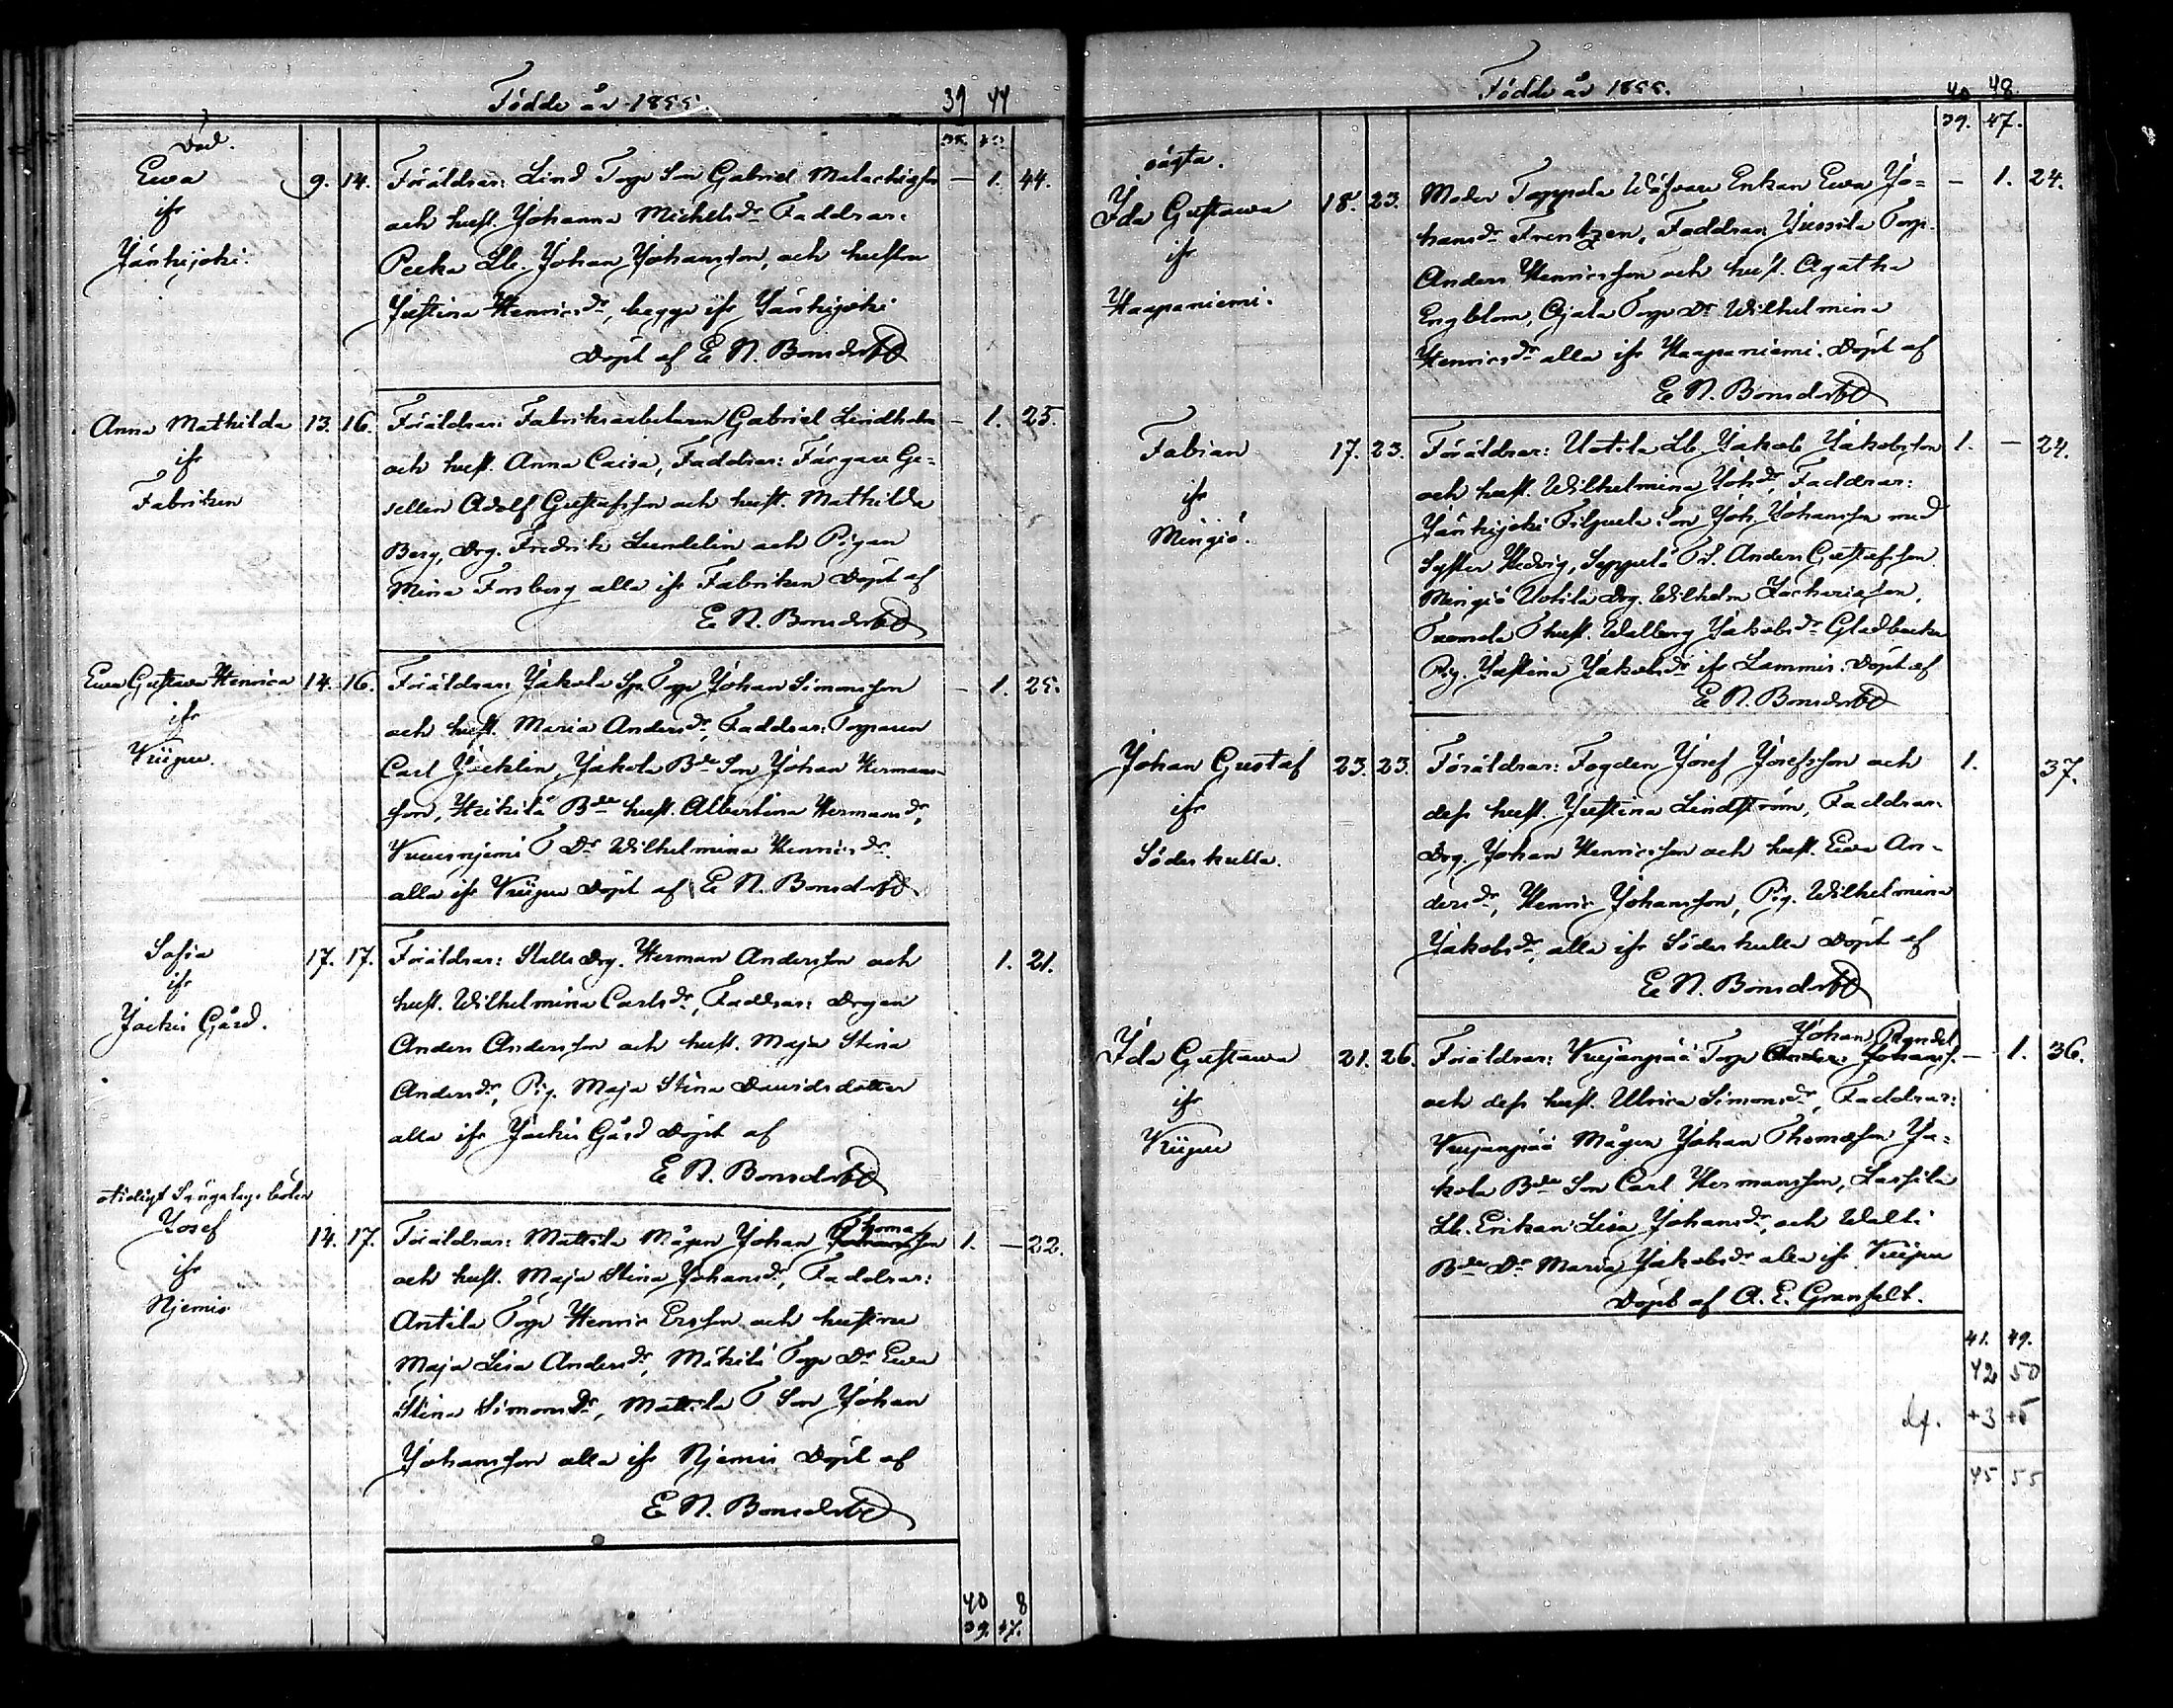 Födde år 1855.
39 44
Död.
38. 43.
Ewa 9. 14. Föräldrar: Lind Torp Son Gabriel Malachiasson — 1. 44.
ifr och hust. Johanna Michelsdr Faddrar:
Jänhijoki. Pecka Lb. Johan Johansson, och hustrun
Justina Henricsdr, begge ifr Jänhijoki
Döpt af E N. Bonsdorff
Anna Mathilda 13. 16. Föräldrar: Fabriksarbetaren Gabriel Lindholm — 1. 25.
ifr och hust. Anna Caisa, Faddrar: Färgare Ge-
Fabriken sellen Adolf Gustafsson och hust. Mathilda
Berg, Drg. Fredrik Lundelin och Pigan
Mina Forsberg alla ifr Fabriken Döpt af
E N. Bonsdorff
Ewa Gustava Henrica 14. 16. Föräldrar: Jakola Sp. Torp Johan Simonsson — 1. 25.
ifr och hust. Maria Andersdr, Faddrar: Torparen
Viipu. Carl Jäcklin, Jakola Bde Son Johan Hermans-
son, Heikilä Bde hust. Albertina Hermansdr,
T Dr Wilhelmina Henricsdr.
alla ifr Viipu Döpt af E N. Bonsdorff
Sofia 17. 17. Föräldrar: Stalls Drg. Herman Andersson och 1. 21.
ifr hust. Wilhelmina Carlsdr, Faddrar: Drgen
Jockis Gård. Anders Andersson och hust. Maja Stina
Andersdr, Pig. Maja Stina Davidsdotter
alla ifr Jockis Gård Döpt af
E N. Bonsdorff
Josef 14. 17. Föräldrar: Mattila Mågen Johan Thomasson 1. — 22.
ifr och hust. Maja Stina Johansdr, Faddrar:
Njemis Antila Torp Henric Ersson och hustrun
Maja Lisa Andersdr, Mäkilä Torp Dr Ewa
Stina Simonsdr, Mattila T Son Johan
Johansson alla ifr Njemis Döpt af
E N. Bonsdorff
40 8
39. 47.
Födde år 1855.
40 48.
39. 47.
oägta.
Ida Gustawa 18. 23. Moder Toppola Enkan Ewa Jo- — 1. 24.
ifr hansdr Frentzen, Faddrar Jussila Torp.
Haapaniemi. Anders Henricsson och hust. Agatha
Engblom, Ojala Torp Dr Wilhelmina
Henricsdr alla ifr Haapaniemi. Döpt af
E N. Bonsdorff
Fabian 17. 23. Föräldrar: Uotila Lb. Jakob Jakobsson 1. — 24.
ifr och hust. Wilhelmina Johdr, Faddrar:
Mingiö. Jänhijoki Son Joh. Johansson med
Syster Hedvig, Seppälä Anders Gustafsson.
Mingiö Uotila Drg. Wilhelm Zachariasson,
T hust. Walborg Jakobsdr Gladbacka
Pig. Justina Jakobsdr ifr Lammis. Döpt af
E N. Bonsdorff
Johan Gustaf 23. 23. Föräldrar: Fogden Josef Josefsson och 1. 37.
ifr dess hust. Justina Lindström, Faddrar:
Söderkulla. Drg. Johan Henricsson och hust. Ewa An-
dersdr, Henric Johansson, Pig. Wilhelmina
Jakobsdr, alla ifr Söderkulla Döpt af
E N. Bonsdorff
Johan Randel
Ida Gustawa 21. 26. Föräldrar: Vuojanpää Torp Anders Johanss. — 1. 36.
ifr och dess hust. Ulrica Simonsdr, Faddrar:
Viipu Vuojanpää Mågen Johan Thomasson Ja-
kola Bde Son Carl Hermansson, Lassila
Lb. Enkan Lisa Johansdr, och Walli
Bde Dr Maria Jakobsdr alla ifr Viipu
Döpt af A. E. Granfelt.
41. 49.
42 50
+3 +5
45 55